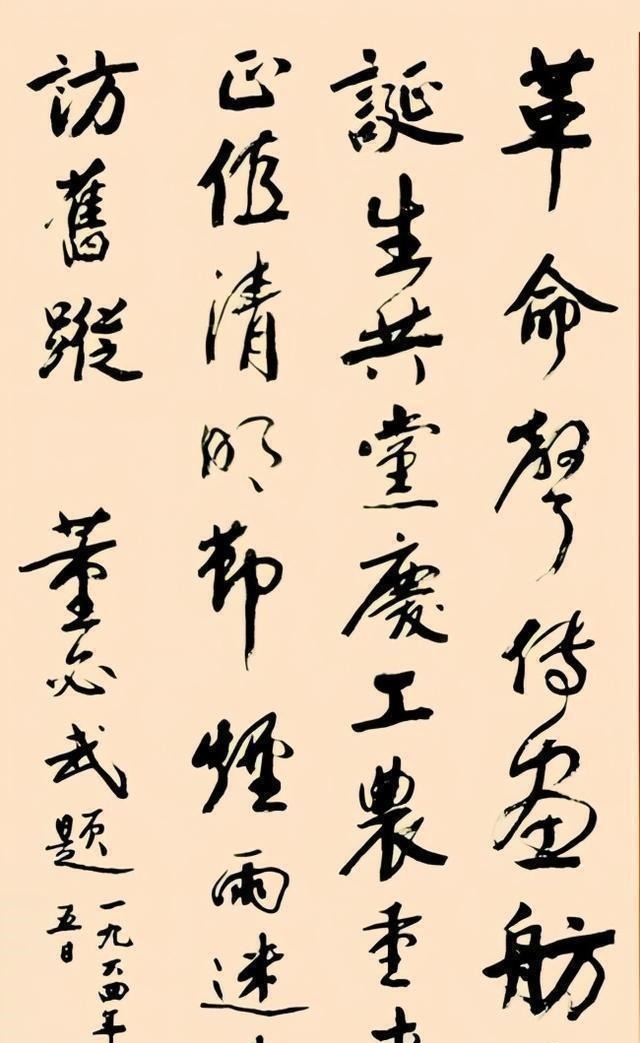 革命聲傳畫舫
誕生共黨慶工農重
正值清明節煙雨迷
訪舊蹤 董必武題
一九六四年
五日